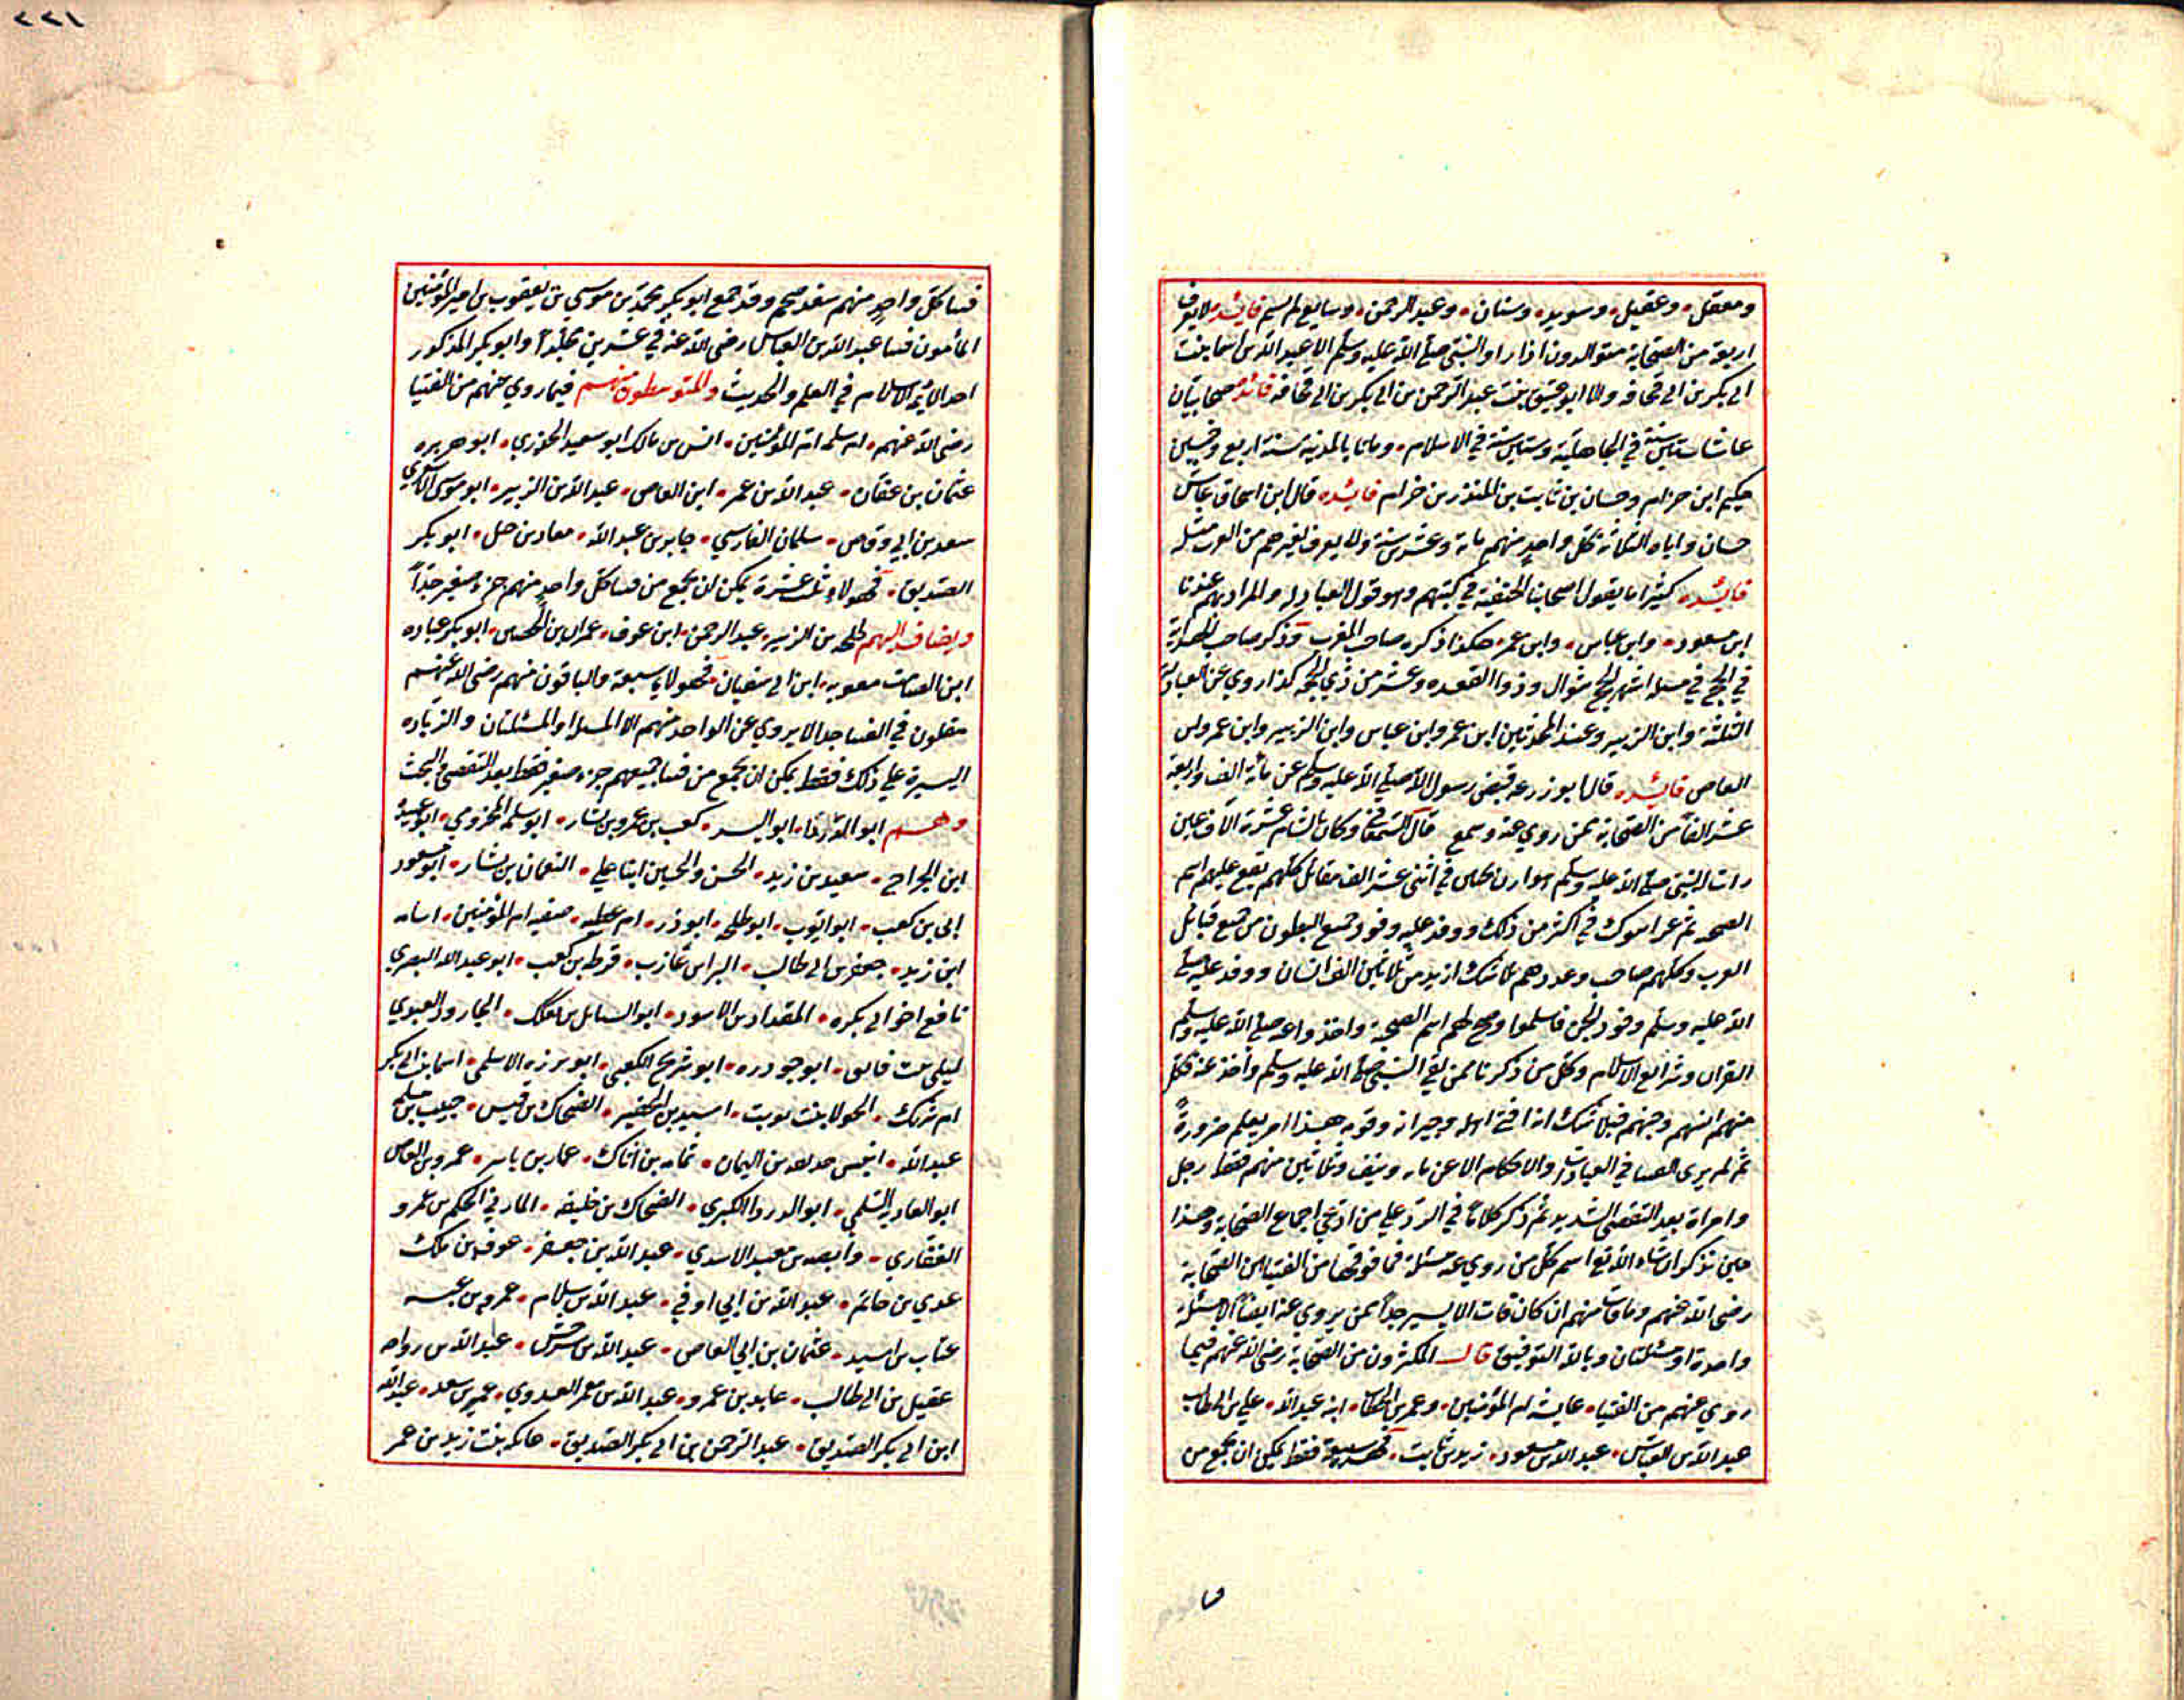 ومعقل وعقيل وسويد وسنان وعبد الرحمن وسابع لم يسم فائدة لا يعرف
اربعة من الصحابة متوالدون اذا راوا النبى صلى الله عليه وسلم الا عبد الله بن اسما بنت
ابى بكر بن ابى قحافه والا ابو عتيق بن عبد الرحمن بن ابى بكر بن ابى قحافه فائدة صحابيان
عاشا ستين سنة في الجاهلية وستين سنة في الاسلام وماتا بالمدينه سنة اربع وخمسين
حكيم ابن حزام وحسان بن ثابت بن المنذر بن حرام فائده قال ابن اسحاق عاش
حسان واباه الثلاثة كل واحد منهم مائة وعشرين سنة ولا يعرف لغيرهم من العرب مثله
فائده كثيرا ما يقول اصحابنا الحنفية في كتبهم وهو قول العبادله والمراد بهم عندنا
ابن مسعود وابن عباس وابن عمر هكذا ذكره صاحب المغرب وذكر صاحب الهداية
في الحج في مسئلة اشهر الحج شوال وذو القعده وعشر من ذي الحجة كذا روي عن العبادلة
الثلثة وابن الزبير وعند المحدثين ابن عمر وابن عباس وابن الزبير وابن عمرو بن
العاص فائده قال ابو زرعه قبض رسول الله صلى الله عليه وسلم عن مأية الف واربعة
عشر الفا من الصحابة ممن روي عنه وسمع قال وكان بالشام عشرة آلاف عين
رات النبى صلى الله عليه وسلم هوازن بحنين في اثنى عشر الف مقاتل كلهم يقع عليهم اسم
الصحبه ثم غزا تبوك في اكثر من ذلك ووفد عليه وفود جميع البطون من جميع قبائل
العرب وكلهم صاحب وعددهم بلا شك ازيد من ثلاثين الف انسان ووفد عليه صلى
الله عليه وسلم وفود الجن فاسلموا وصح لهم اسم الصحبة واخذوا عنه صلى الله عليه وسلم
القران وشرائع الاسلام وكل من ذكرنا ممن لقي النبى صلى الله عليه وسلم واخذ عنه فكل
منهم انسهم وجنهم فبلا شك انه افتى اهله وجيرانه وقومه هذا امر يعلم ضرورة
ثم لم يروى الفتيا في العبادات والاحكام الا عن مايه ونيف وثلاثين منهم فقط رجل
وامراة بعد التقصى الشديد ثم ذكر كلاما في الرد على من ادعى اجماع الصحابة وهذا
حين نذكر ان شاء الله تع اسم كل من روي عنه مسئلة فما فوقها من الفتيا من الصحابة
رضى الله عنهم وما فات منهم ان كان فات الا يسير جدا ممن يروي عنه ايضا الا مسئلة
واحدة او مسئلتان وبالله التوفيق قال المكثرون من الصحابة رضى الله عنهم فيما
روي عنهم من الفتيا عايشه ام المؤمنين وعمر بن الخطاب ابنه عبد الله علي بن ابى طالب
عبد الله بن العباس عبد الله بن مسعود زيد بن ثابت فهم سبعة فقط يمكن ان يجمع من
٢٢١
فتيا كل واحد منهم سفر ضخم وقد جمع ابو بكر محمد بن موسي بن يعقوب بن امير المؤمنين
المأمون فتيا عبد الله بن العباس رضى الله عنه في عشرين مجلدا وابو بكر المذكور
احد الائمة الاسلام في العلم والحديث والمتوسطون منهم فيما روي عنهم من الفتيا
رضى الله عنهم ام سلمه ام المؤمنين انس بن مالك ابو سعيد الخدري ابو هريره
عثمان بن عفان عبد الله بن عمر ابن العاص عبد الله بن الزبير ابو موسى الاشعري
سعد بن ابي وقاص سلمان الفارسي جابر بن عبد الله معاد بن جبل ابو بكر
الصديق فهولاء ثلث عشرة يمكن ان يجمع من فتيا كل واحد منهم جزء صغير جدا
ويضاف اليهم طلحه بن الزبير عبد الرحمن ابن عوف عمران بن الحصين ابو بكر عباده
ابن الصامت معويه ابن ابى سفيان فهولا سبعة والباقون منهم رضى الله عنهم
مقلون في الفتيا جدا لا يروي عن الواحد منهم الا المسئلة او المسئلتان والزياده
اليسيرة علي ذلك فقط يمكن ان يجمع من فتيا جميعهم جزء صغير فقط بعد التقصى والبحث
وهم ابو الدردا ابو اليسر كعب بن عمرو بن يسار ابو سلمه المخزومي ابو عبيدة
ابن الجراح سعيد بن زيد الحسن والحسين ابنا علي النعمان بن بشار ابو مسعود
ابى بن كعب ابو ايوب ابو طلحه ابو ذر ام عطيه صفيه ام المؤمنين اسامه
ابن زيد جعفر بن ابى طالب البرا بن عازب قرظه بن كعب ابو عبد الله البصري
نافع اخو ابى بكره المقداد بن الاسود ابو السنابل بن بعكك الجارود العبدي
ليلى بنت قانف ابو محدوره ابو شريح الكعبى ابو برزه الاسلمى اسما بنت ابى بكر
ام شريك الحولا بنت تويت اسيد بن الحضير الضحاك بن قيس حبيب بن مسلمه
عبد الله انيس حديفه بن اليمان ثمامه بن اثاك عمار بن ياسر عمرو بن العاص
ابو الغاديه السلمي ابو الدردا الكبرى الضحاك بن خليفه الحكم بن عمرو
الغفاري وابصه بن معبد الاسدي عبد الله بن جعفر عوف بن ملك
عدي بن حاتم عبد الله بن ابي اوفي عبد الله بن سلام عمرو بن عبسه
عتاب بن اسيد عثمان بن ابي العاص عبد الله بن سرجس عبد الله بن رواحه
عقيل بن ابى طالب عايد بن عمرو عبد الله بن معمر العدوي عمير بن سعد عبد الله
ابن ابى بكر الصديق عبد الرحمن بن ابى بكر الصديق عاتكه بنت زيد بن عمر